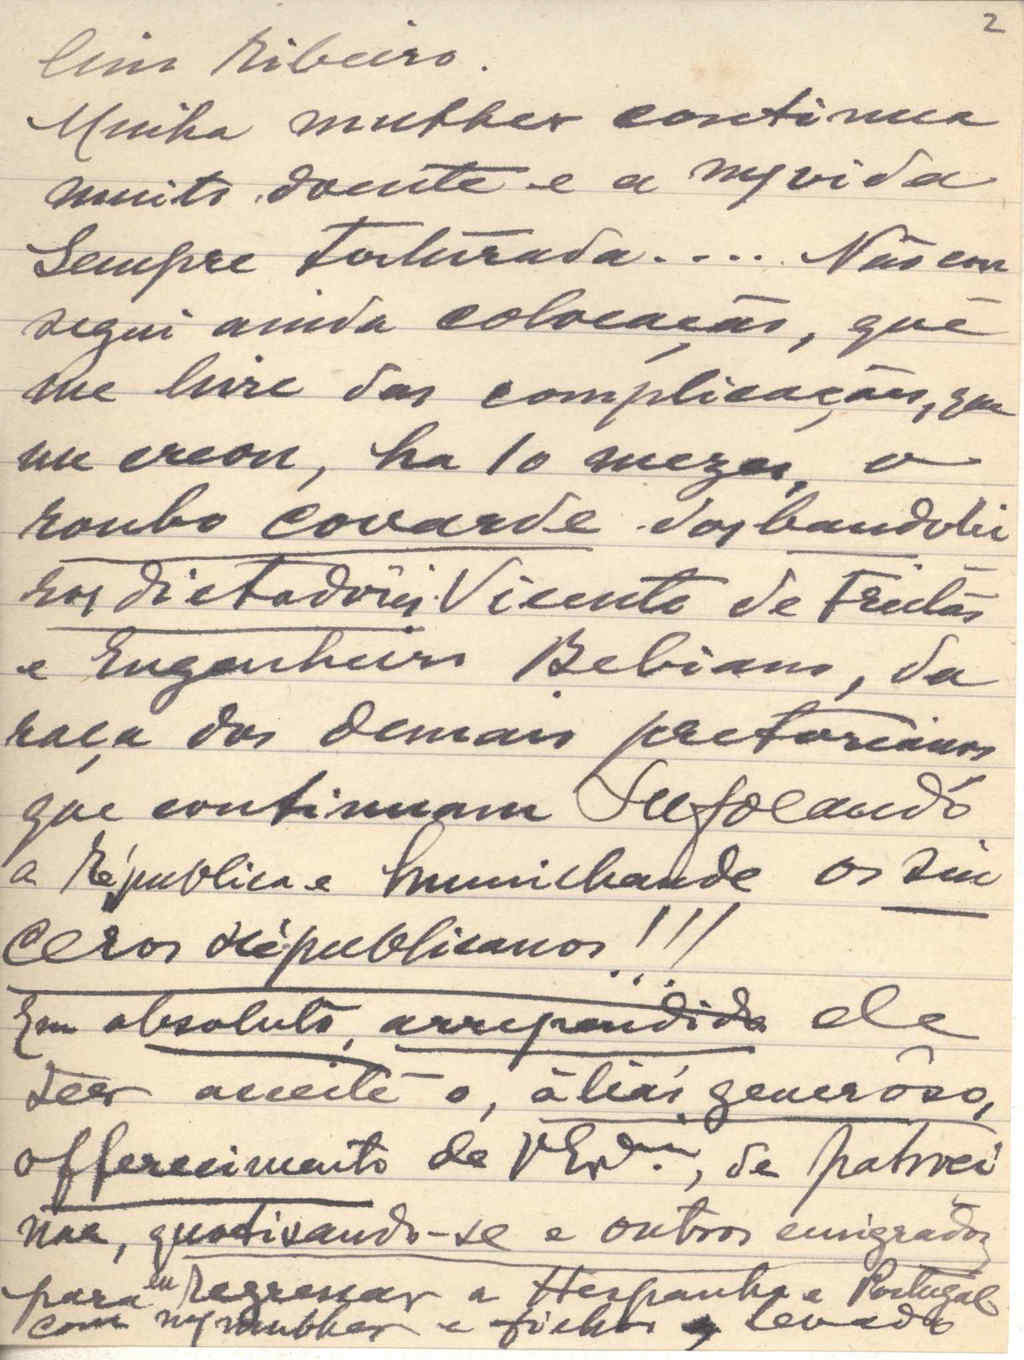 2
Ribeiro.
Minha mulher continua
muito doente e a m/ vida
sempre torturada.... Não con
segui ainda colocação, que
me livre das complicações, que
me creou, ha 10 mezes, o
roubo covarde dos bandolei
ros dictadores Vicente de Freitas
e Engenheiro Bebiano, da
raça dos demais pretorianos
que continuam sufocando
a Républica e humilhando os sin
ceros républicanos!!!
Em absoluto, arrependido de
ter aceite o, áliás generôso,
offerecimento de V. Ex.ª, de patroci
nar, quotisando-se e outros emigrados
para eu regressar a Hespanha e Portugal
com m/ mulher e filhos, levado